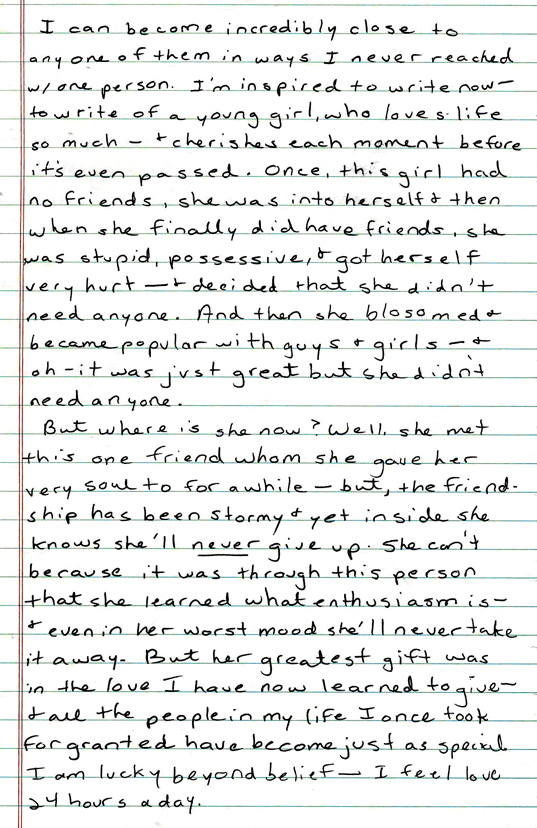 I can become incredibly close to
any one of them in ways I never reached
w/ one person. I'm inspired to write now—
to write of a young girl, who loves life
so much — & cherishes each moment before
it's even passed. Once, this girl had
no friends, she was into herself & then
when she finally did have friends, she
was stupid, possessive, & got herself
very hurt — & decided that she didn't
need anyone. And then she blosomed &
became popular with guys & girls — &
oh - it was just great but she didn't
need anyone.
But where is she now? Well, she met
this one friend whom she gave her
very soul to for awhile — but, the friend-
ship has been stormy & yet inside she
knows she'll never give up. She can't
because it was through this person
that she learned what enthusiasm is—
& even in her worst mood she'll never take
it away. But her greatest gift was
in the love I have now learned to give—
& all the people in my life I once took
for granted have become just as special
I am lucky beyond belief — I feel love
24 hours a day.